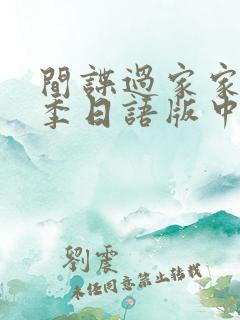 間諜過家家
季日語版中
劉震
未經同意禁止轉載